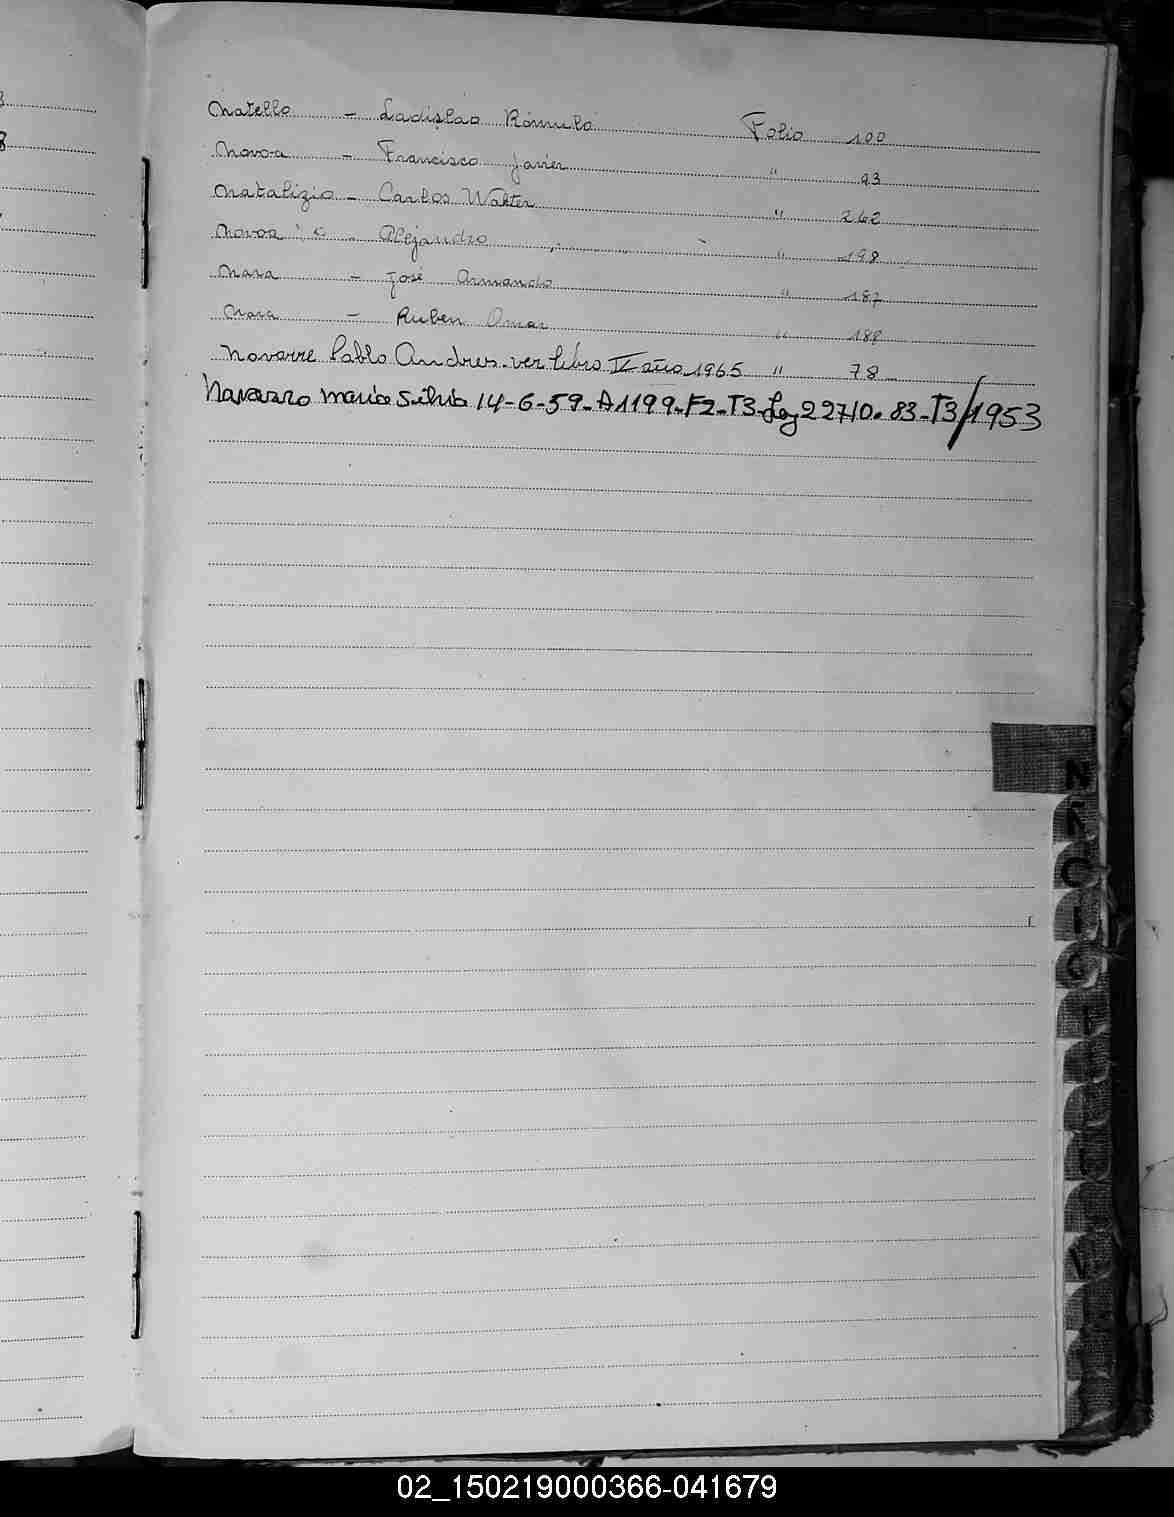 Natello - Ladislao Rómulo Folio 100
Novoa - Francisco Javier " 93
Natalizio - Carlos Walter " 262
Novoa - Alejandro " 198
Nara - José Armando " 187
Nara - Ruben Omar " 188
Navarre Pablo Andres. ver libro IV año 1965 " 78
Navarro Maria Silvia 14-6-59-A1199-F2-T3-Leg 22710. 83-T3/1953
N
Ñ
O
V
02_150219000366-041679